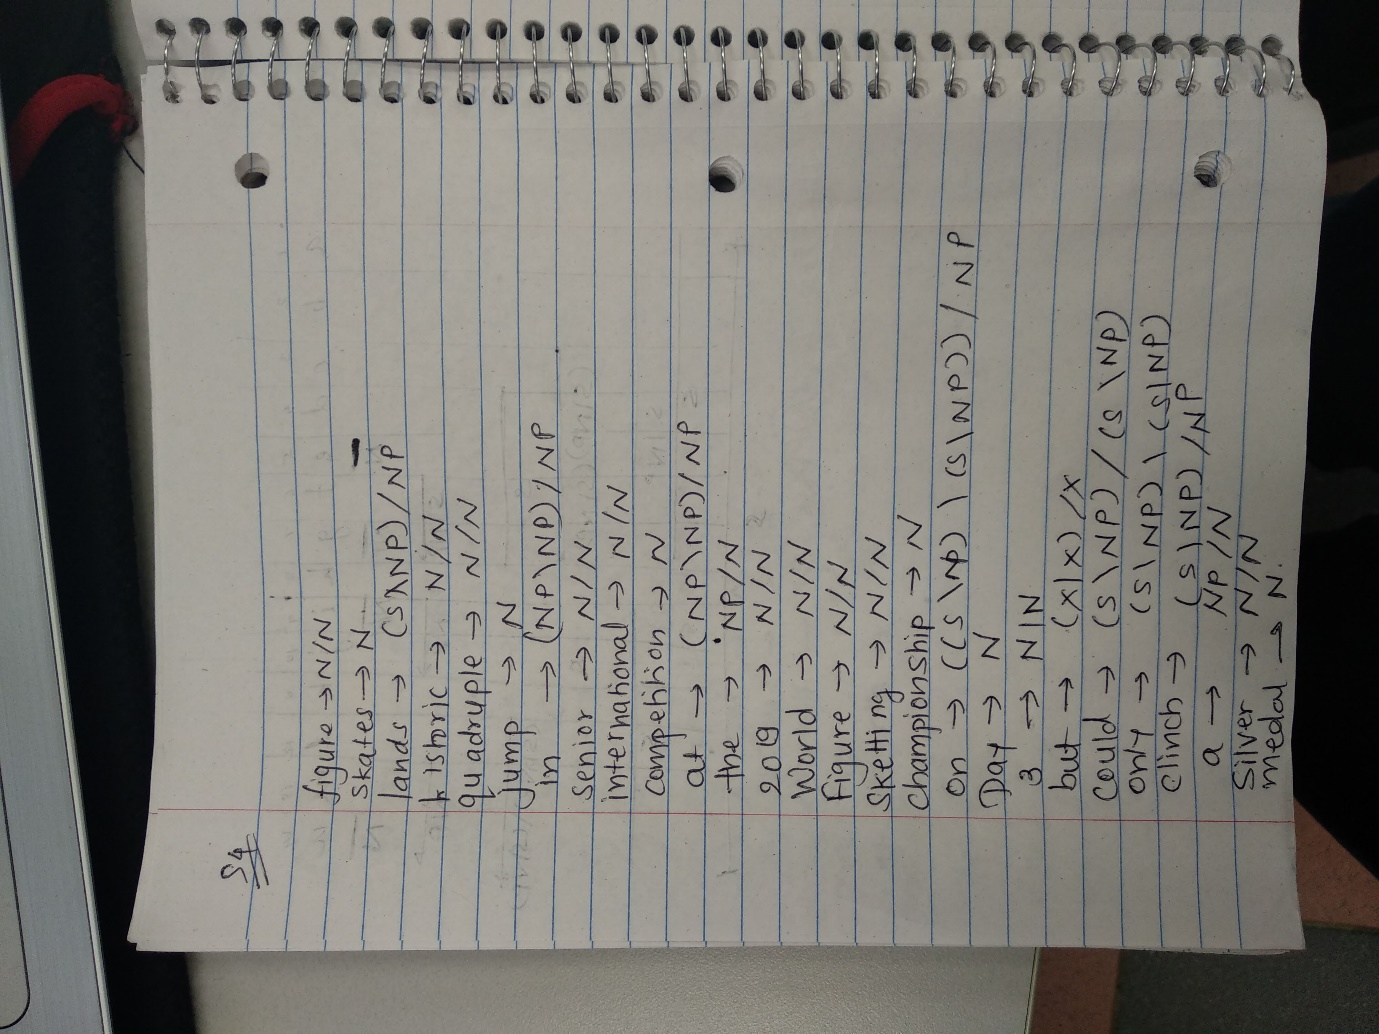 S4
figure → N/N
skates → N
lands → (S\NP)/NP
historic → N/N
quadruple → N/N
jump → N
in → (NP\NP)/NP
senior → N/N
international → N/N
competition → N
at → (NP\NP)/NP
the → NP/N
2019 → N/N
World → N/N
Figure → N/N
Sketting → N/N
Championship → N
on → ((S\NP)\(S\NP))/NP
Day → N
3 → N|N
but → (X|X)/X
Could → (S\NP)/(S\NP)
only → (S\NP)\(S|NP)
Clinch → (S\NP)/NP
a → NP/N
Silver → N/N
medal → N.